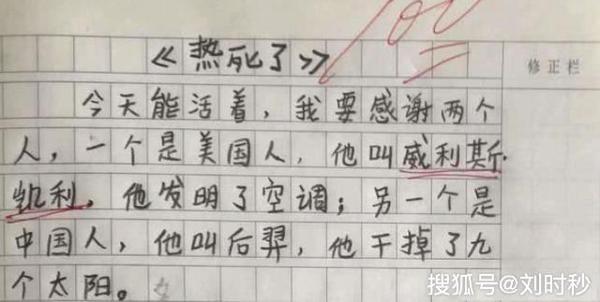 100
《热死了》
修正栏
今天能活着，我要感谢两个
人，一个是美国人，他叫威利斯·
凯利，他发明了空调；另一个是
中国人，他叫后羿，他干掉了九
个太阳。
搜狐号@刘时秒